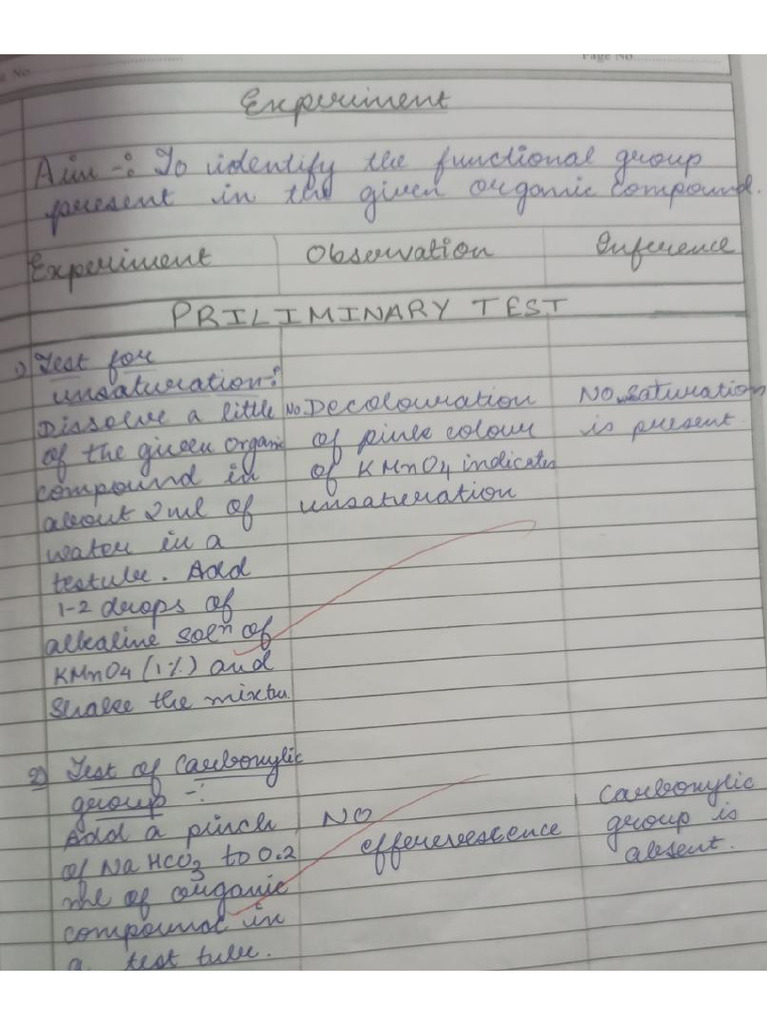 Page No.
Experiment
Aim -: To identify the functional group
present in the given organic compound.
Experiment Observation Inference
PRILIMINARY TEST
1) Test for
unsaturation :
Dissolve a little
of the given organic
compound in
about 2 ml of
water in a
testube. Add
1-2 drops of
alkaline solⁿ of
KMnO4 (1%) and
shake the mixtu.
No Decolouration
of pink colour
of KMnO4 indicates
unsaturation
NO saturation
is present
2) Test of Carboxylic
group -:
Add a pinch
of NaHCO3 to 0.2
ml of organic
compound in
a test tube.
NO
effervescence
Carboxylic
group is
absent.